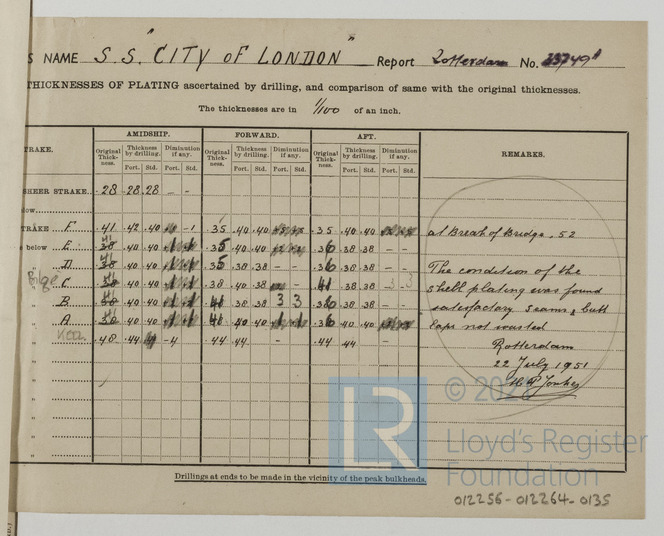 S NAME S.S. "CITY OF LONDON" Report Rotterdam No. 33749A
THICKNESSES OF PLATING ascertained by drilling, and comparison of same with the original thicknesses.
The thicknesses are in 1/100 of an inch.
TRAKE. AMIDSHIP. FORWARD. AFT. REMARKS.
Original Thickness. Thickness by drilling. Diminution if any. Original Thickness. Thickness by drilling. Diminution if any. Original Thickness. Thickness by drilling. Diminution if any.
Port. Std. Port. Std. Port. Std. Port. Std. Port. Std. Port. Std.
SHEER STRAKE .28 .28 .28 - -
low
TRAKE F .41 .42 .40 -1 .35 .40 .40 .35 .40 .40 at Break of Bridge .52
s below E 41 .40 .40 1 1 .35 .40 .40 .36 .38 .38 - -
" D 41 .40 .40 1 1 .35 .38 .38 - - .36 .38 .38 - - The condition of the
Bilge C 41 .40 .40 1 1 .38 .38 - 41 .38 .38 3 3 shell plating was found
" B 41 .40 .40 1 1 41 .38 .38 3 3 .36 .38 .38 - - satisfactory seams & butt
" A 41 .40 .40 1 1 41 .40 .40 1 1 .36 .40 .40 laps not wasted
" Keel .48 .44 .44 -4 .44 .44 .44 .44 Rotterdam
" 22 July 1951
"
"
"
"
"
Drillings at ends to be made in the vicinity of the peak bulkheads.
LR
Lloyd's Register
Foundation
012256-012264-0135